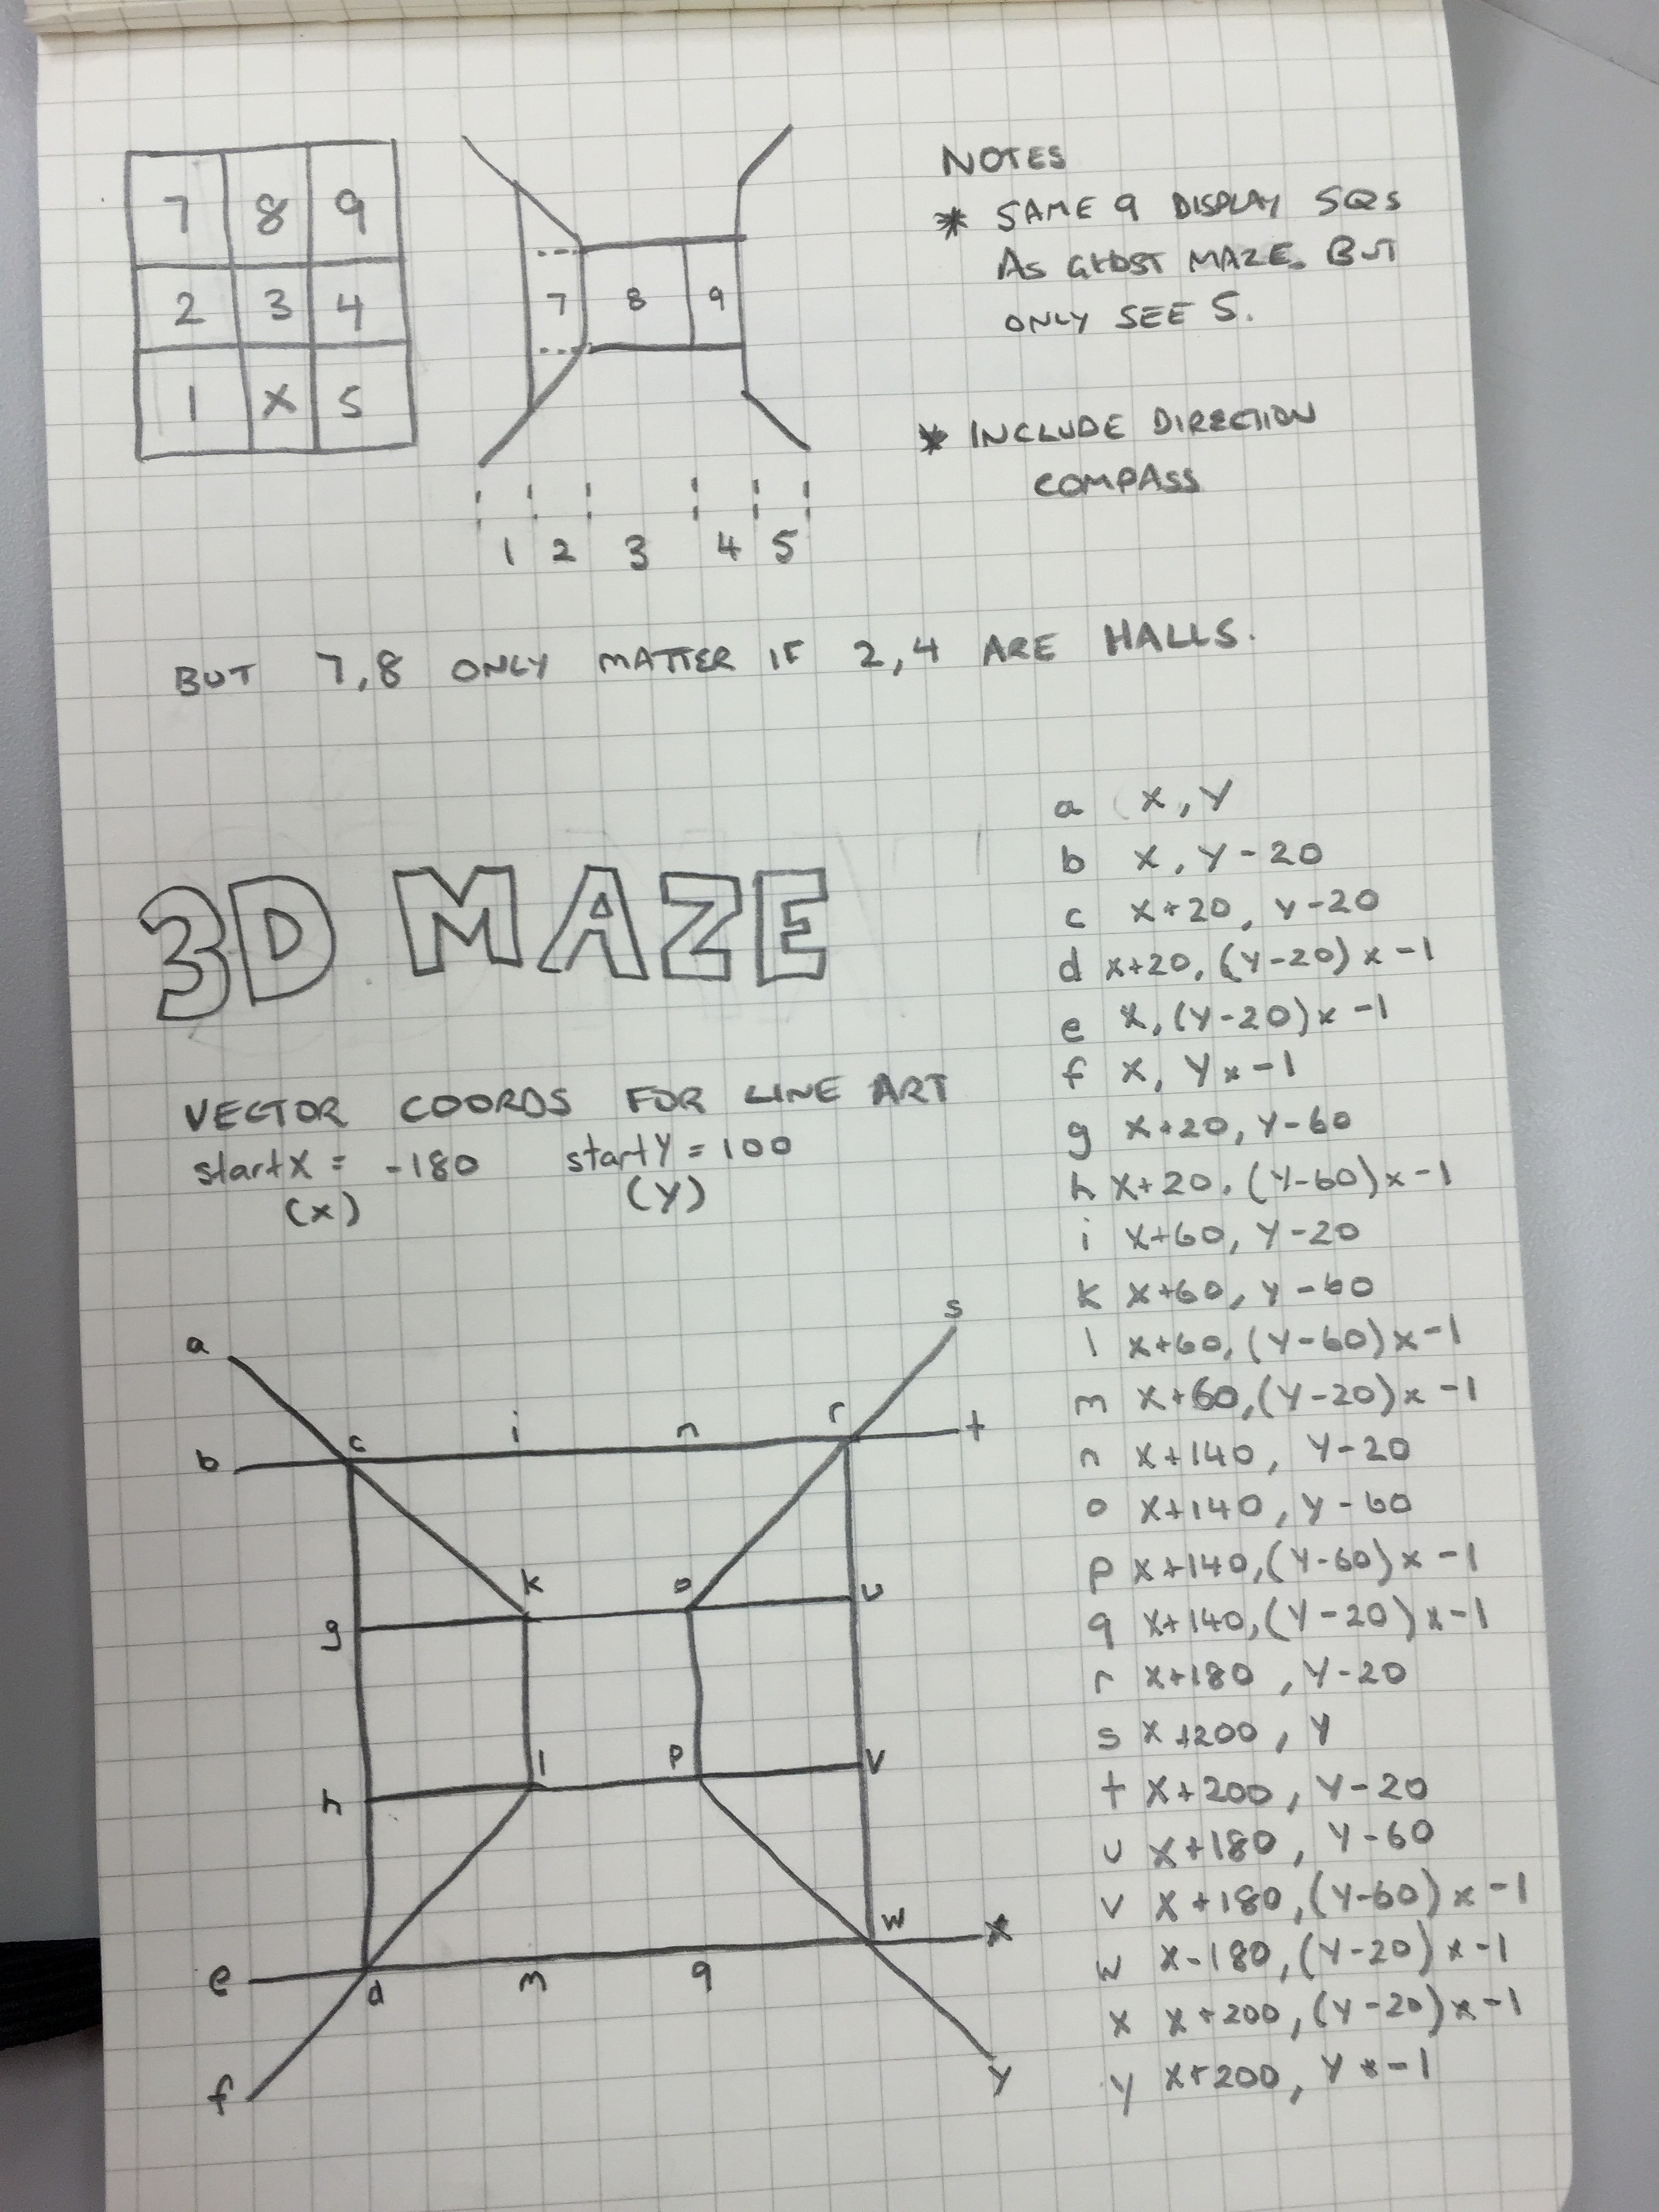 7 8 9
2 3 4
1 X 5
7 8 9
1 2 3 4 5
NOTES
* SAME 9 DISPLAY SQS
AS GHOST MAZE. BUT
ONLY SEE 5.
* INCLUDE DIRECTION
COMPASS
BUT 7,8 ONLY MATTER IF 2,4 ARE HALLS.
3D MAZE
VECTOR COORDS FOR LINE ART
startX = -180 startY = 100
(x) (Y)
a X, Y
b X, Y-20
c X+20, Y-20
d X+20, (Y-20)x-1
e X, (Y-20)x-1
f X, Yx-1
g X+20, Y-60
h X+20, (Y-60)x-1
i X+60, Y-20
k X+60, Y-60
l X+60, (Y-60)x-1
m X+60, (Y-20)x-1
n X+140, Y-20
o X+140, Y-60
p X+140, (Y-60)x-1
q X+140, (Y-20)x-1
r X+180, Y-20
s X+200, Y
t X+200, Y-20
u X+180, Y-60
v X+180, (Y-60)x-1
w X-180, (Y-20)x-1
x X+200, (Y-20)x-1
y X+200, Y*-1
a s
b c i n r t
g k o u
h l p v
e d m q w x
f y